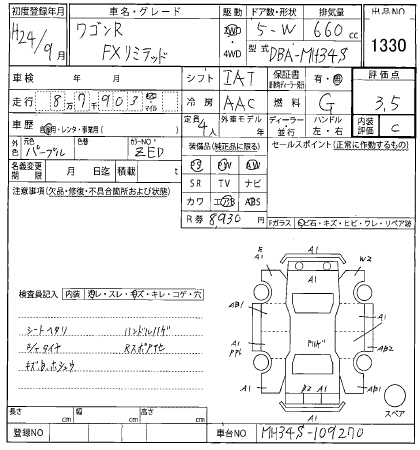 初度登録年月 車名・グレード 駆動 ドア数・形状 排気量 出品NO
H24/9月 ワゴンR 2WD 5-W 660cc 1330
FXリミテッド ・4WD 型式 DBA-MH34S
車検 年 月 シフト IAT 保証書 有・無 評価点
走行 8万7千903 km マイル 冷房 AAC 燃料 G 3,5
車歴 自家用・レンタ・事業用( ) 定員 4人 外車モデル 年 ディーラー 並行 ハンドル 左・右 内装評価 C
外色 元色 パープル 色替 カラーNO ZED
装備品(純正品に限る) セールスポイント(正常に作動するもの)
名義変更期限 月 日迄 積載 t PS PW AW
注意事項(欠品・修復・不具合箇所および状態) SR TV ナビ
カワ エアB ABS
R券 8,930円 Fガラス 飛石・キズ・ヒビ・ワレ・リペア跡
E A1 A1 W2
A1 A1
検査員記入 内装 ヨゴレ・スレ・キズ・キレ・コゲ・穴
AB1 A1
シートヘタリ ハンドルハゲ
A1
A2
A1 A1 B2 A1 AB1
スペア
長さ cm 幅 cm 高さ cm
登録NO 車台NO MH34S-109270